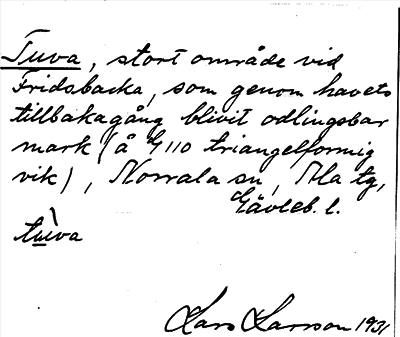 Tuva, stort område vid
Fridsbacka, som genom havets
tillbakagång blivit odlingsbar
mark (å G 110 triangelformig
vik), Norrala sn, Ala tg,
Gävleb. l.
tùva
Lars Larsson 1931